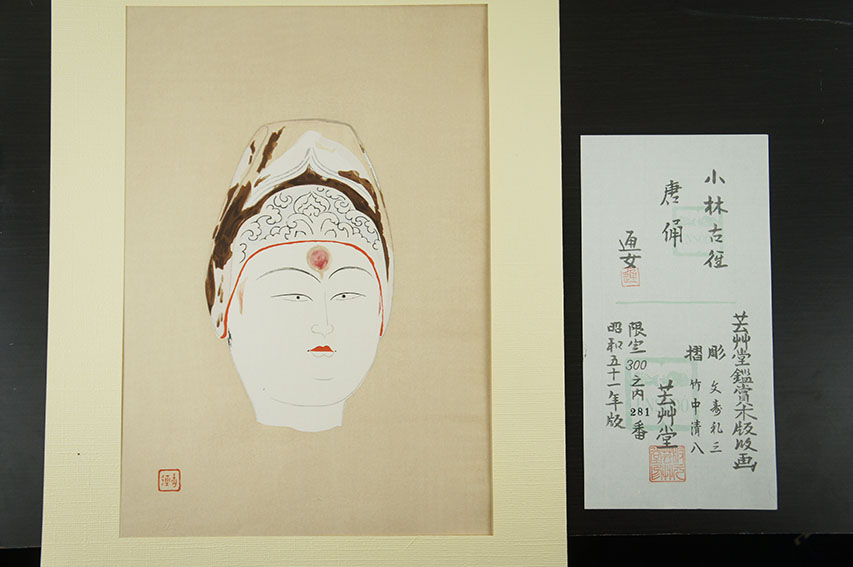 小林古径
唐俑
通女
芸艸堂鑑賞木版版画
彫 文寿礼三
摺 竹中清八
芸艸堂
限定300之内281番
昭和五十一年版